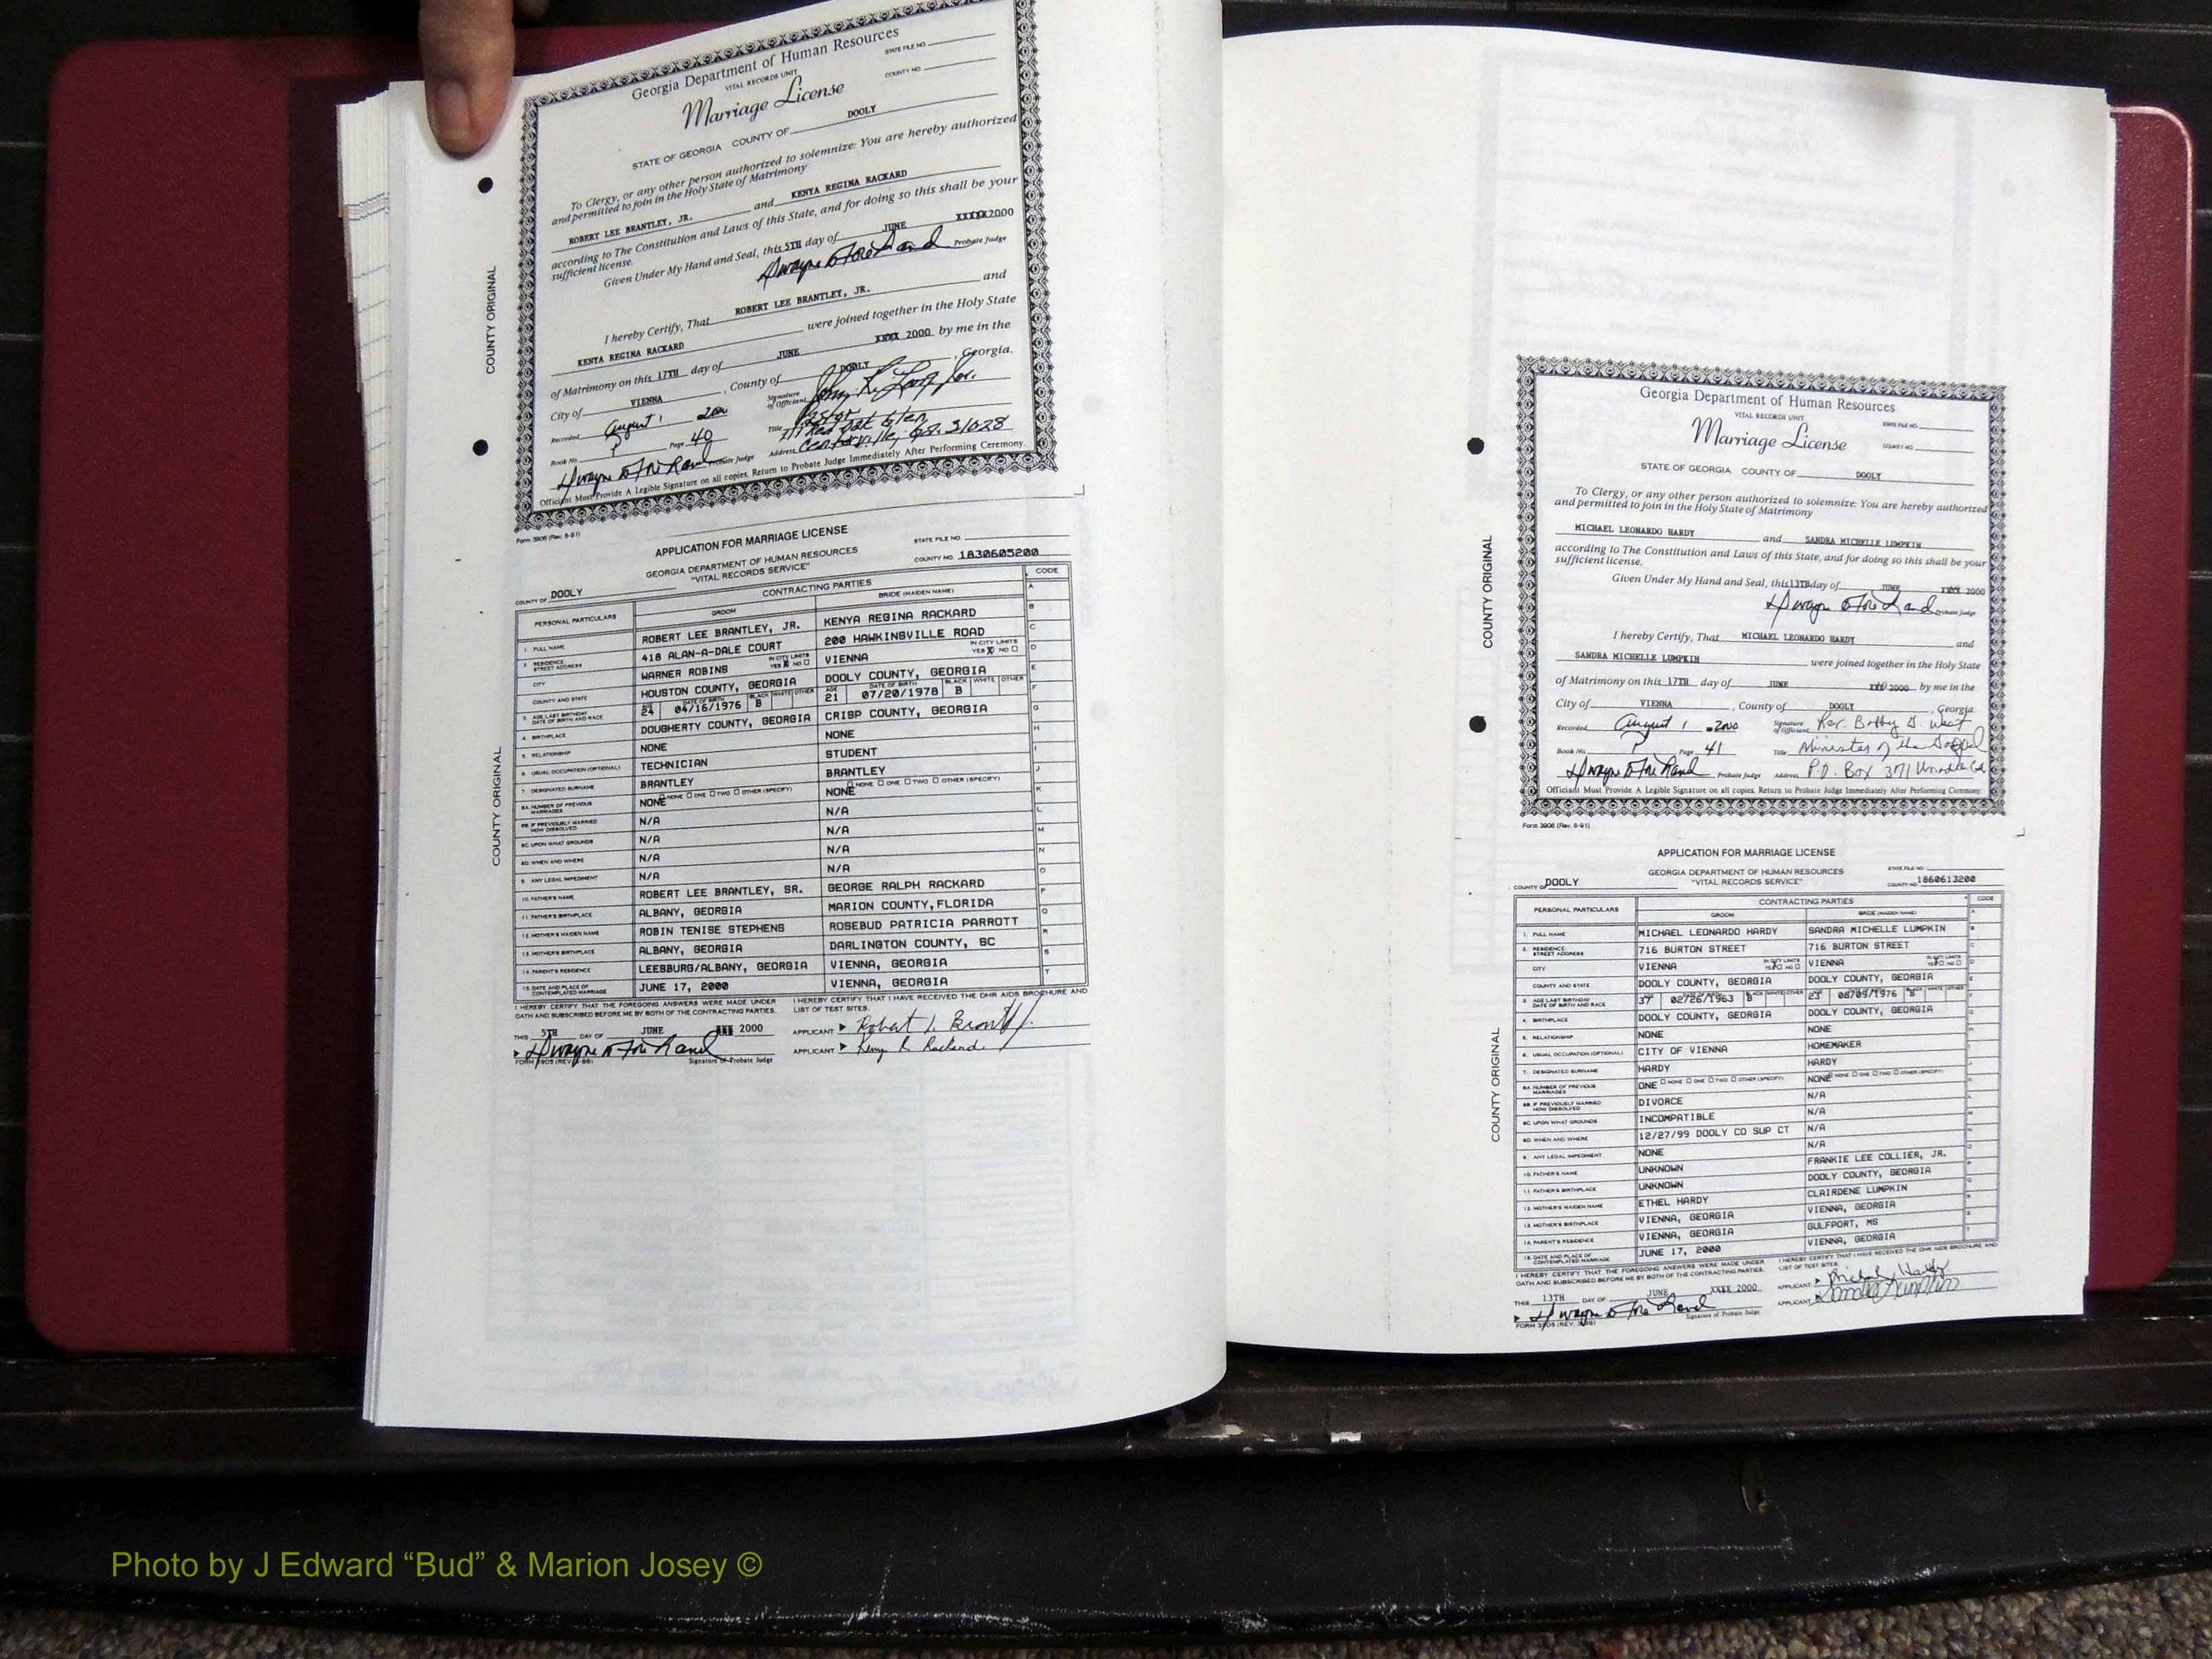 Georgia Department of Human Resources
VITAL RECORDS UNIT
STATE FILE NO.
COUNTY NO.
Marriage License
STATE OF GEORGIA COUNTY OF DOOLY
To Clergy, or any other person authorized to solemnize: You are hereby authorized
and permitted to join in the Holy State of Matrimony
ROBERT LEE BRANTLEY, JR. and KENYA REGINA RACKARD
according to The Constitution and Laws of this State, and for doing so this shall be your
sufficient license.
Given Under My Hand and Seal, this 5TH day of JUNE XXXXX2000
Probate Judge
I hereby Certify, That ROBERT LEE BRANTLEY, JR. and
KENYA REGINA RACKARD were joined together in the Holy State
of Matrimony on this 17TH day of JUNE XXXX 2000 by me in the
City of VIENNA, County of DOOLY, Georgia.
Recorded August 1 2000 Signature of Officiant
Book No. P Page 40 Title Pastor
Probate Judge Address 111 Red Oak Glen
Centerville, Ga. 31028
Officiant Must Provide A Legible Signature on all copies. Return to Probate Judge Immediately After Performing Ceremony.
Form 3906 (Rev. 6-91)
COUNTY ORIGINAL
APPLICATION FOR MARRIAGE LICENSE
GEORGIA DEPARTMENT OF HUMAN RESOURCES
"VITAL RECORDS SERVICE"
STATE FILE NO.
COUNTY NO. 1830605200
COUNTY OF DOOLY
PERSONAL PARTICULARS CONTRACTING PARTIES CODE
GROOM BRIDE (MAIDEN NAME)
1. FULL NAME ROBERT LEE BRANTLEY, JR. KENYA REGINA RACKARD
2. RESIDENCE STREET ADDRESS 418 ALAN-A-DALE COURT 200 HAWKINSVILLE ROAD
CITY WARNER ROBINS IN CITY LIMITS YES X NO VIENNA IN CITY LIMITS YES X NO
COUNTY AND STATE HOUSTON COUNTY, GEORGIA DOOLY COUNTY, GEORGIA
3. AGE LAST BIRTHDAY DATE OF BIRTH AND RACE 24 04/16/1976 B 21 07/20/1978 B
4. BIRTHPLACE DOUGHERTY COUNTY, GEORGIA CRISP COUNTY, GEORGIA
5. RELATIONSHIP NONE NONE
6. USUAL OCCUPATION (OPTIONAL) TECHNICIAN STUDENT
7. DESIGNATED SURNAME BRANTLEY BRANTLEY
8A. NUMBER OF PREVIOUS MARRIAGES NONE NONE ONE TWO OTHER (SPECIFY) NONE NONE ONE TWO OTHER (SPECIFY)
8B. IF PREVIOUSLY MARRIED HOW DISSOLVED N/A N/A
8C. UPON WHAT GROUNDS N/A N/A
8D. WHEN AND WHERE N/A N/A
9. ANY LEGAL IMPEDIMENT N/A N/A
10. FATHER'S NAME ROBERT LEE BRANTLEY, SR. GEORGE RALPH RACKARD
11. FATHER'S BIRTHPLACE ALBANY, GEORGIA MARION COUNTY,FLORIDA
12. MOTHER'S MAIDEN NAME ROBIN TENISE STEPHENS ROSEBUD PATRICIA PARROTT
13. MOTHER'S BIRTHPLACE ALBANY, GEORGIA DARLINGTON COUNTY, SC
14. PARENT'S RESIDENCE LEESBURG/ALBANY, GEORGIA VIENNA, GEORGIA
15. DATE AND PLACE OF CONTEMPLATED MARRIAGE JUNE 17, 2000 VIENNA, GEORGIA
I HEREBY CERTIFY THAT THE FOREGOING ANSWERS WERE MADE UNDER
OATH AND SUBSCRIBED BEFORE ME BY BOTH OF THE CONTRACTING PARTIES.
I HEREBY CERTIFY THAT I HAVE RECEIVED THE DHR AIDS BROCHURE AND
LIST OF TEST SITES.
THIS 5TH DAY OF JUNE XXX 2000
APPLICANT
APPLICANT
Signature of Probate Judge
COUNTY ORIGINAL
Georgia Department of Human Resources
VITAL RECORDS UNIT
STATE FILE NO.
Marriage License
COUNTY NO.
STATE OF GEORGIA COUNTY OF DOOLY
To Clergy, or any other person authorized to solemnize: You are hereby authorized
and permitted to join in the Holy State of Matrimony
MICHAEL LEONARDO HARDY and SANDRA MICHELLE LUMPKIN
according to The Constitution and Laws of this State, and for doing so this shall be your
sufficient license.
Given Under My Hand and Seal, this 13TH day of JUNE XXXX 2000
Probate Judge
I hereby Certify, That MICHAEL LEONARDO HARDY and
SANDRA MICHELLE LUMPKIN were joined together in the Holy State
of Matrimony on this 17TH day of JUNE 2000 by me in the
City of VIENNA, County of DOOLY, Georgia
Recorded August 1, 2000 Signature of Officiant Rev. Bobby G. West
Book No. P Page 41 Title Minister of the Gospel
Probate Judge Address P.O. Box 371
Officiant Must Provide A Legible Signature on all copies. Return to Probate Judge Immediately After Performing Ceremony.
Form 3906 (Rev. 6-91)
COUNTY ORIGINAL
APPLICATION FOR MARRIAGE LICENSE
GEORGIA DEPARTMENT OF HUMAN RESOURCES
"VITAL RECORDS SERVICE"
STATE FILE NO.
COUNTY NO. 1860613200
COUNTY OF DOOLY
PERSONAL PARTICULARS CONTRACTING PARTIES CODE
GROOM BRIDE (MAIDEN NAME)
1. FULL NAME MICHAEL LEONARDO HARDY SANDRA MICHELLE LUMPKIN
2. RESIDENCE STREET ADDRESS 716 BURTON STREET 716 BURTON STREET
CITY VIENNA VIENNA
COUNTY AND STATE DOOLY COUNTY, GEORGIA DOOLY COUNTY, GEORGIA
3. AGE LAST BIRTHDAY DATE OF BIRTH AND RACE 37 02/26/1963 B 23 08/09/1976 B
4. BIRTHPLACE DOOLY COUNTY, GEORGIA DOOLY COUNTY, GEORGIA
5. RELATIONSHIP NONE NONE
6. USUAL OCCUPATION (OPTIONAL) CITY OF VIENNA HOMEMAKER
7. DESIGNATED SURNAME HARDY HARDY
8A. NUMBER OF PREVIOUS MARRIAGES ONE NONE ONE TWO OTHER (SPECIFY) NONE NONE ONE TWO OTHER (SPECIFY)
8B. IF PREVIOUSLY MARRIED HOW DISSOLVED DIVORCE N/A
8C. UPON WHAT GROUNDS INCOMPATIBLE N/A
8D. WHEN AND WHERE 12/27/99 DOOLY CO SUP CT N/A
9. ANY LEGAL IMPEDIMENT NONE N/A
10. FATHER'S NAME UNKNOWN FRANKIE LEE COLLIER, JR.
11. FATHER'S BIRTHPLACE UNKNOWN DOOLY COUNTY, GEORGIA
12. MOTHER'S MAIDEN NAME ETHEL HARDY CLAIRDENE LUMPKIN
13. MOTHER'S BIRTHPLACE VIENNA, GEORGIA VIENNA, GEORGIA
14. PARENT'S RESIDENCE VIENNA, GEORGIA GULFPORT, MS
15. DATE AND PLACE OF CONTEMPLATED MARRIAGE JUNE 17, 2000 VIENNA, GEORGIA
I HEREBY CERTIFY THAT THE FOREGOING ANSWERS WERE MADE UNDER
OATH AND SUBSCRIBED BEFORE ME BY BOTH OF THE CONTRACTING PARTIES.
I HEREBY CERTIFY THAT I HAVE RECEIVED THE DHR AIDS BROCHURE AND
LIST OF TEST SITES
THIS 13TH DAY OF JUNE XXXX 2000
APPLICANT Michael Hardy
APPLICANT Sandra Lumpkin
Signature of Probate Judge
COUNTY ORIGINAL
Photo by J Edward “Bud” & Marion Josey ©